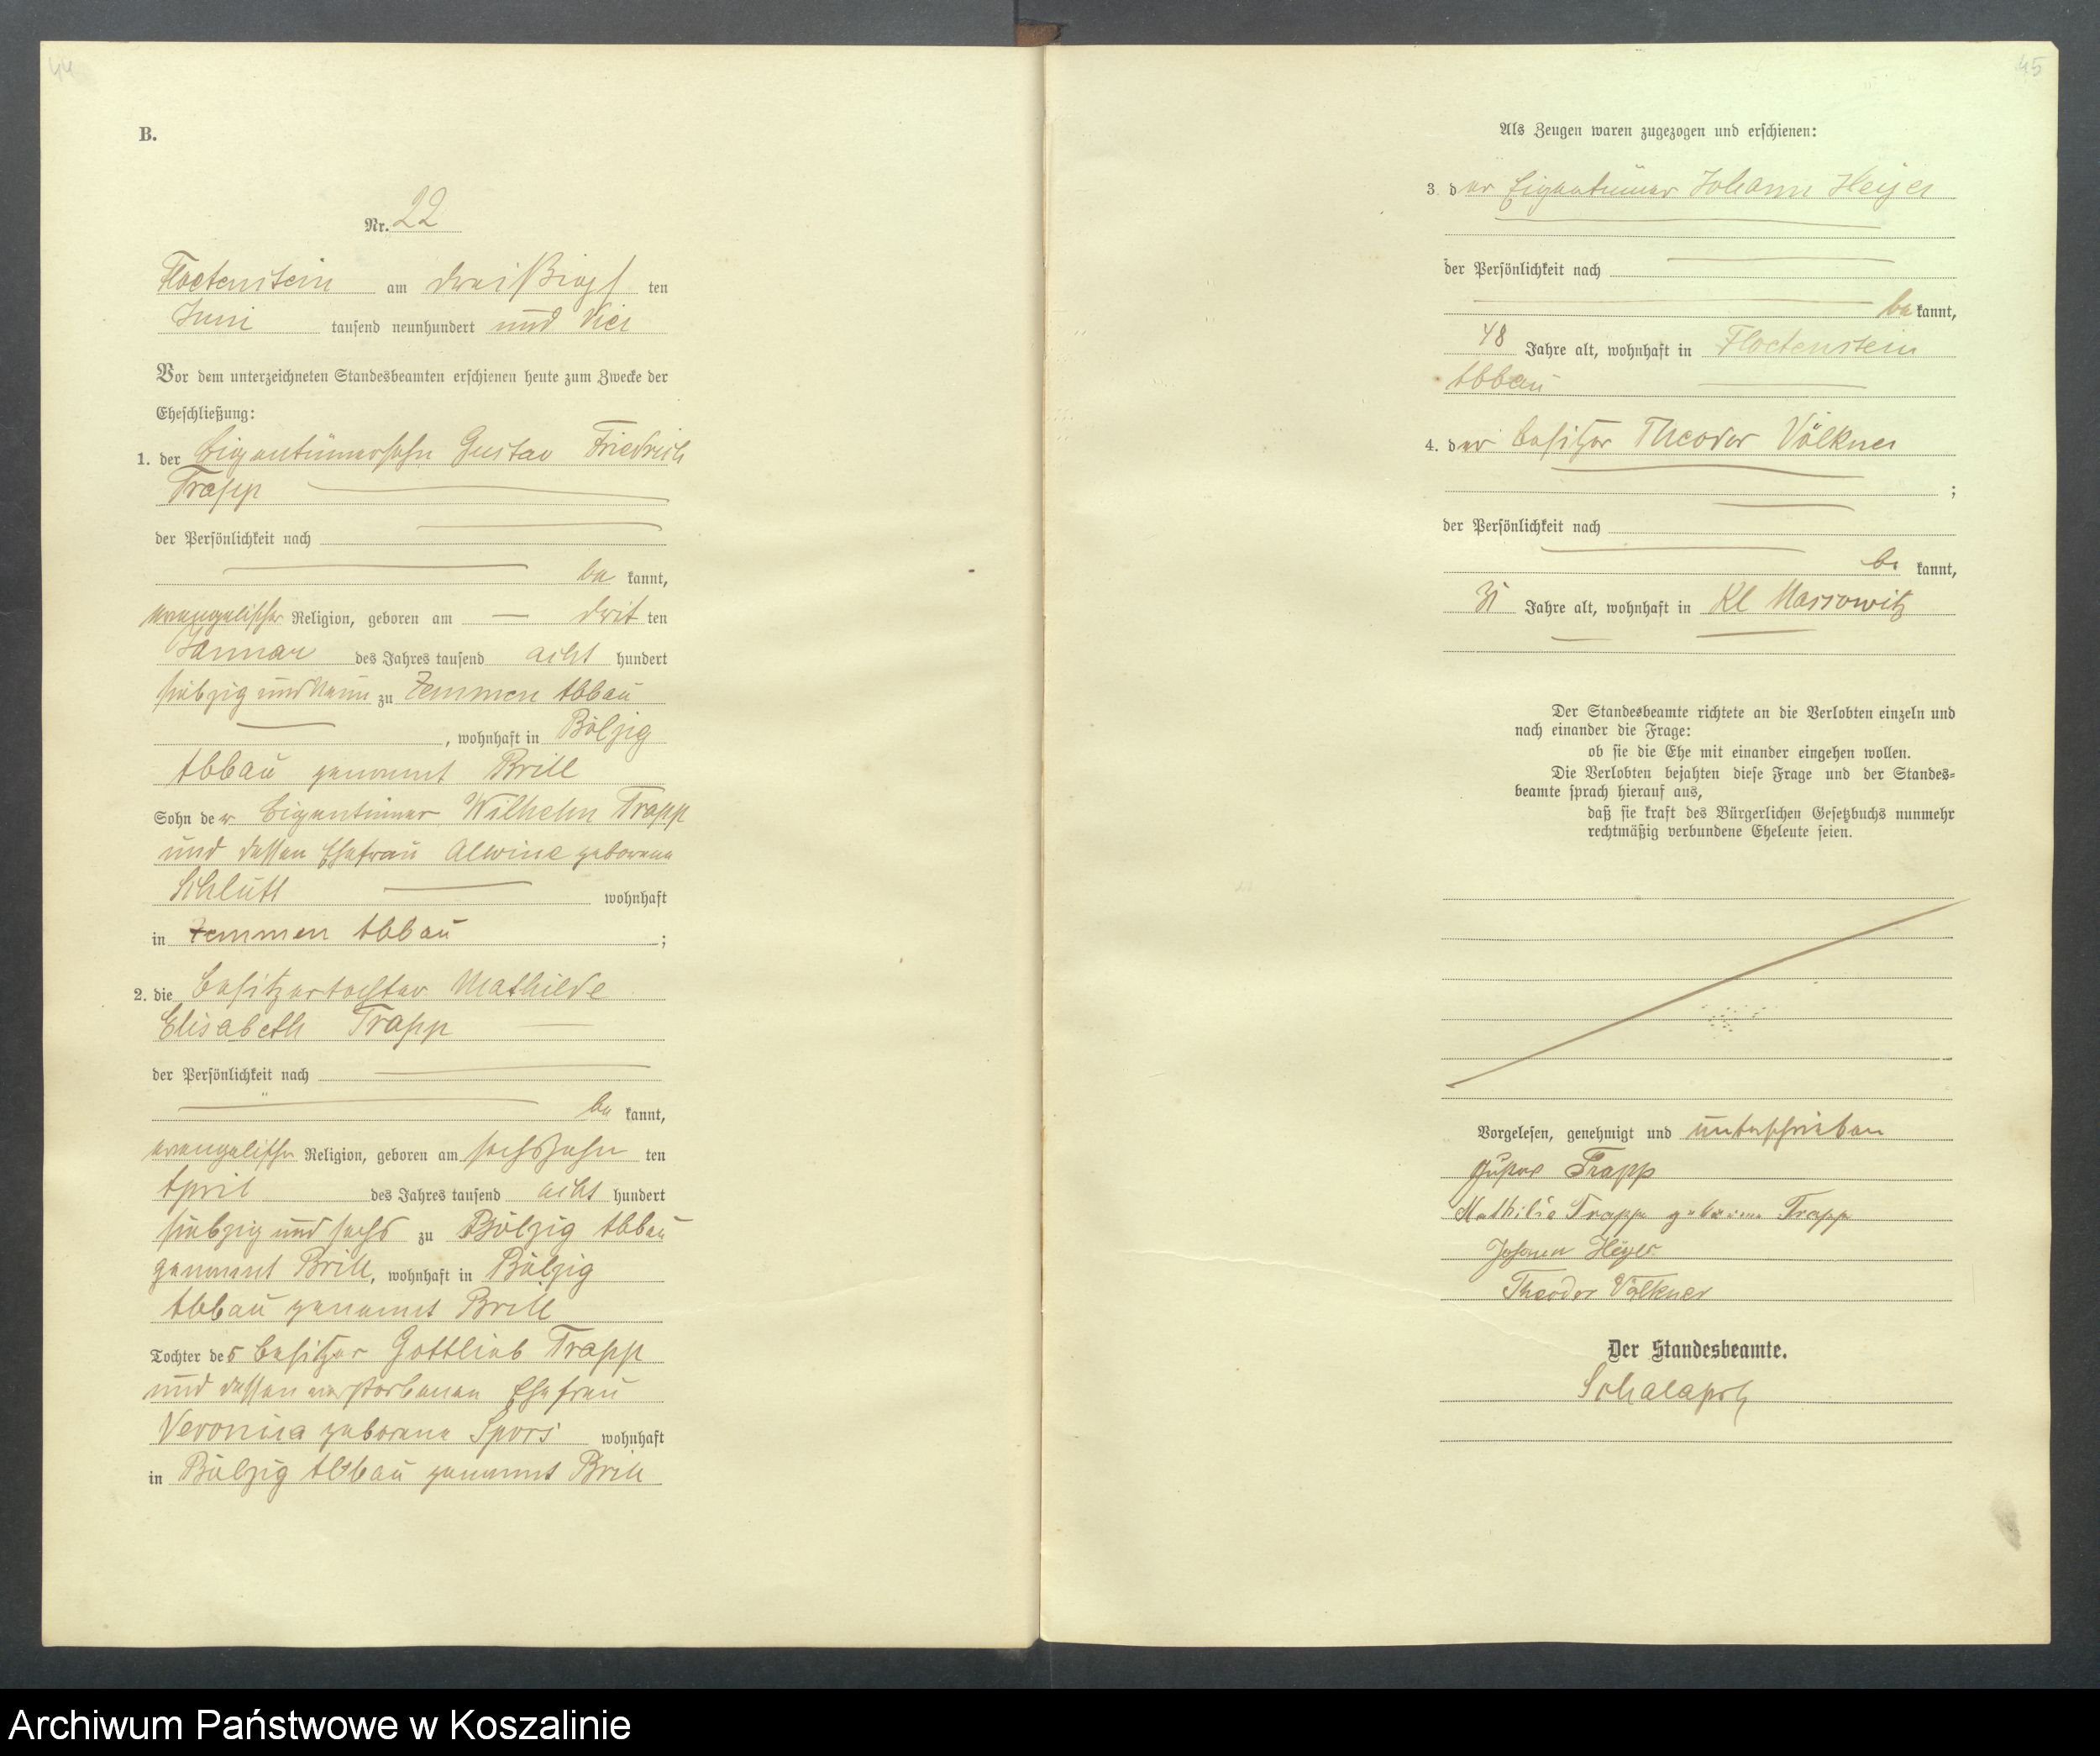 44
B.
Nr. 22
Floetenstein am dreißigs ten
Juni tausend neunhundert und vier
Vor dem unterzeichneten Standesbeamten erschienen heute zum Zwecke der
Eheschließung:
1. der Eigentümersohn Gustav Friedrich
Trapp
der Persönlichkeit nach
be kannt,
evangelischer Religion, geboren am drit ten
Januar des Jahres tausend acht hundert
siebzig und neun zu Zemmen Abbau
, wohnhaft in Bölzig
Abbau genannt Brill
Sohn der Eigentümer Wilhelm Trapp
und dessen Ehefrau Alwine geborene
Schlutt wohnhaft
in Zemmen Abbau ;
2. die Besitzertochter Mathilde
Elisabeth Trapp
der Persönlichkeit nach
be kannt,
evangelischer Religion, geboren am sechszehn ten
April des Jahres tausend acht hundert
siebzig und sechs zu Bölzig Abbau
genannt Brill, wohnhaft in Bölzig
Abbau genannt Brill
Tochter des Besitzer Gottlieb Trapp
und dessen verstorbenen Ehefrau
Veronica geborene Spors wohnhaft
in Bölzig Abbau genannt Brill
45
Als Zeugen waren zugezogen und erschienen:
3. der Eigentümer Johann Heyer
der Persönlichkeit nach
be kannt,
48 Jahre alt, wohnhaft in Floetenstein
Abbau
4. der Besitzer Theodor Völkner
;
der Persönlichkeit nach
be kannt,
31 Jahre alt, wohnhaft in Kl Massowitz
Der Standesbeamte richtete an die Verlobten einzeln und
nach einander die Frage:
ob sie die Ehe mit einander eingehen wollen.
Die Verlobten bejahten diese Frage und der Standes-
beamte sprach hierauf aus,
daß sie kraft des Bürgerlichen Gesetzbuchs nunmehr
rechtmäßig verbundene Eheleute seien.
Vorgelesen, genehmigt und unterschrieben
Gustav Trapp
Mathilde Trapp geborene Trapp
Johann Heyer
Theodor Völkner
Der Standesbeamte.
Archiwum Państwowe w Koszalinie